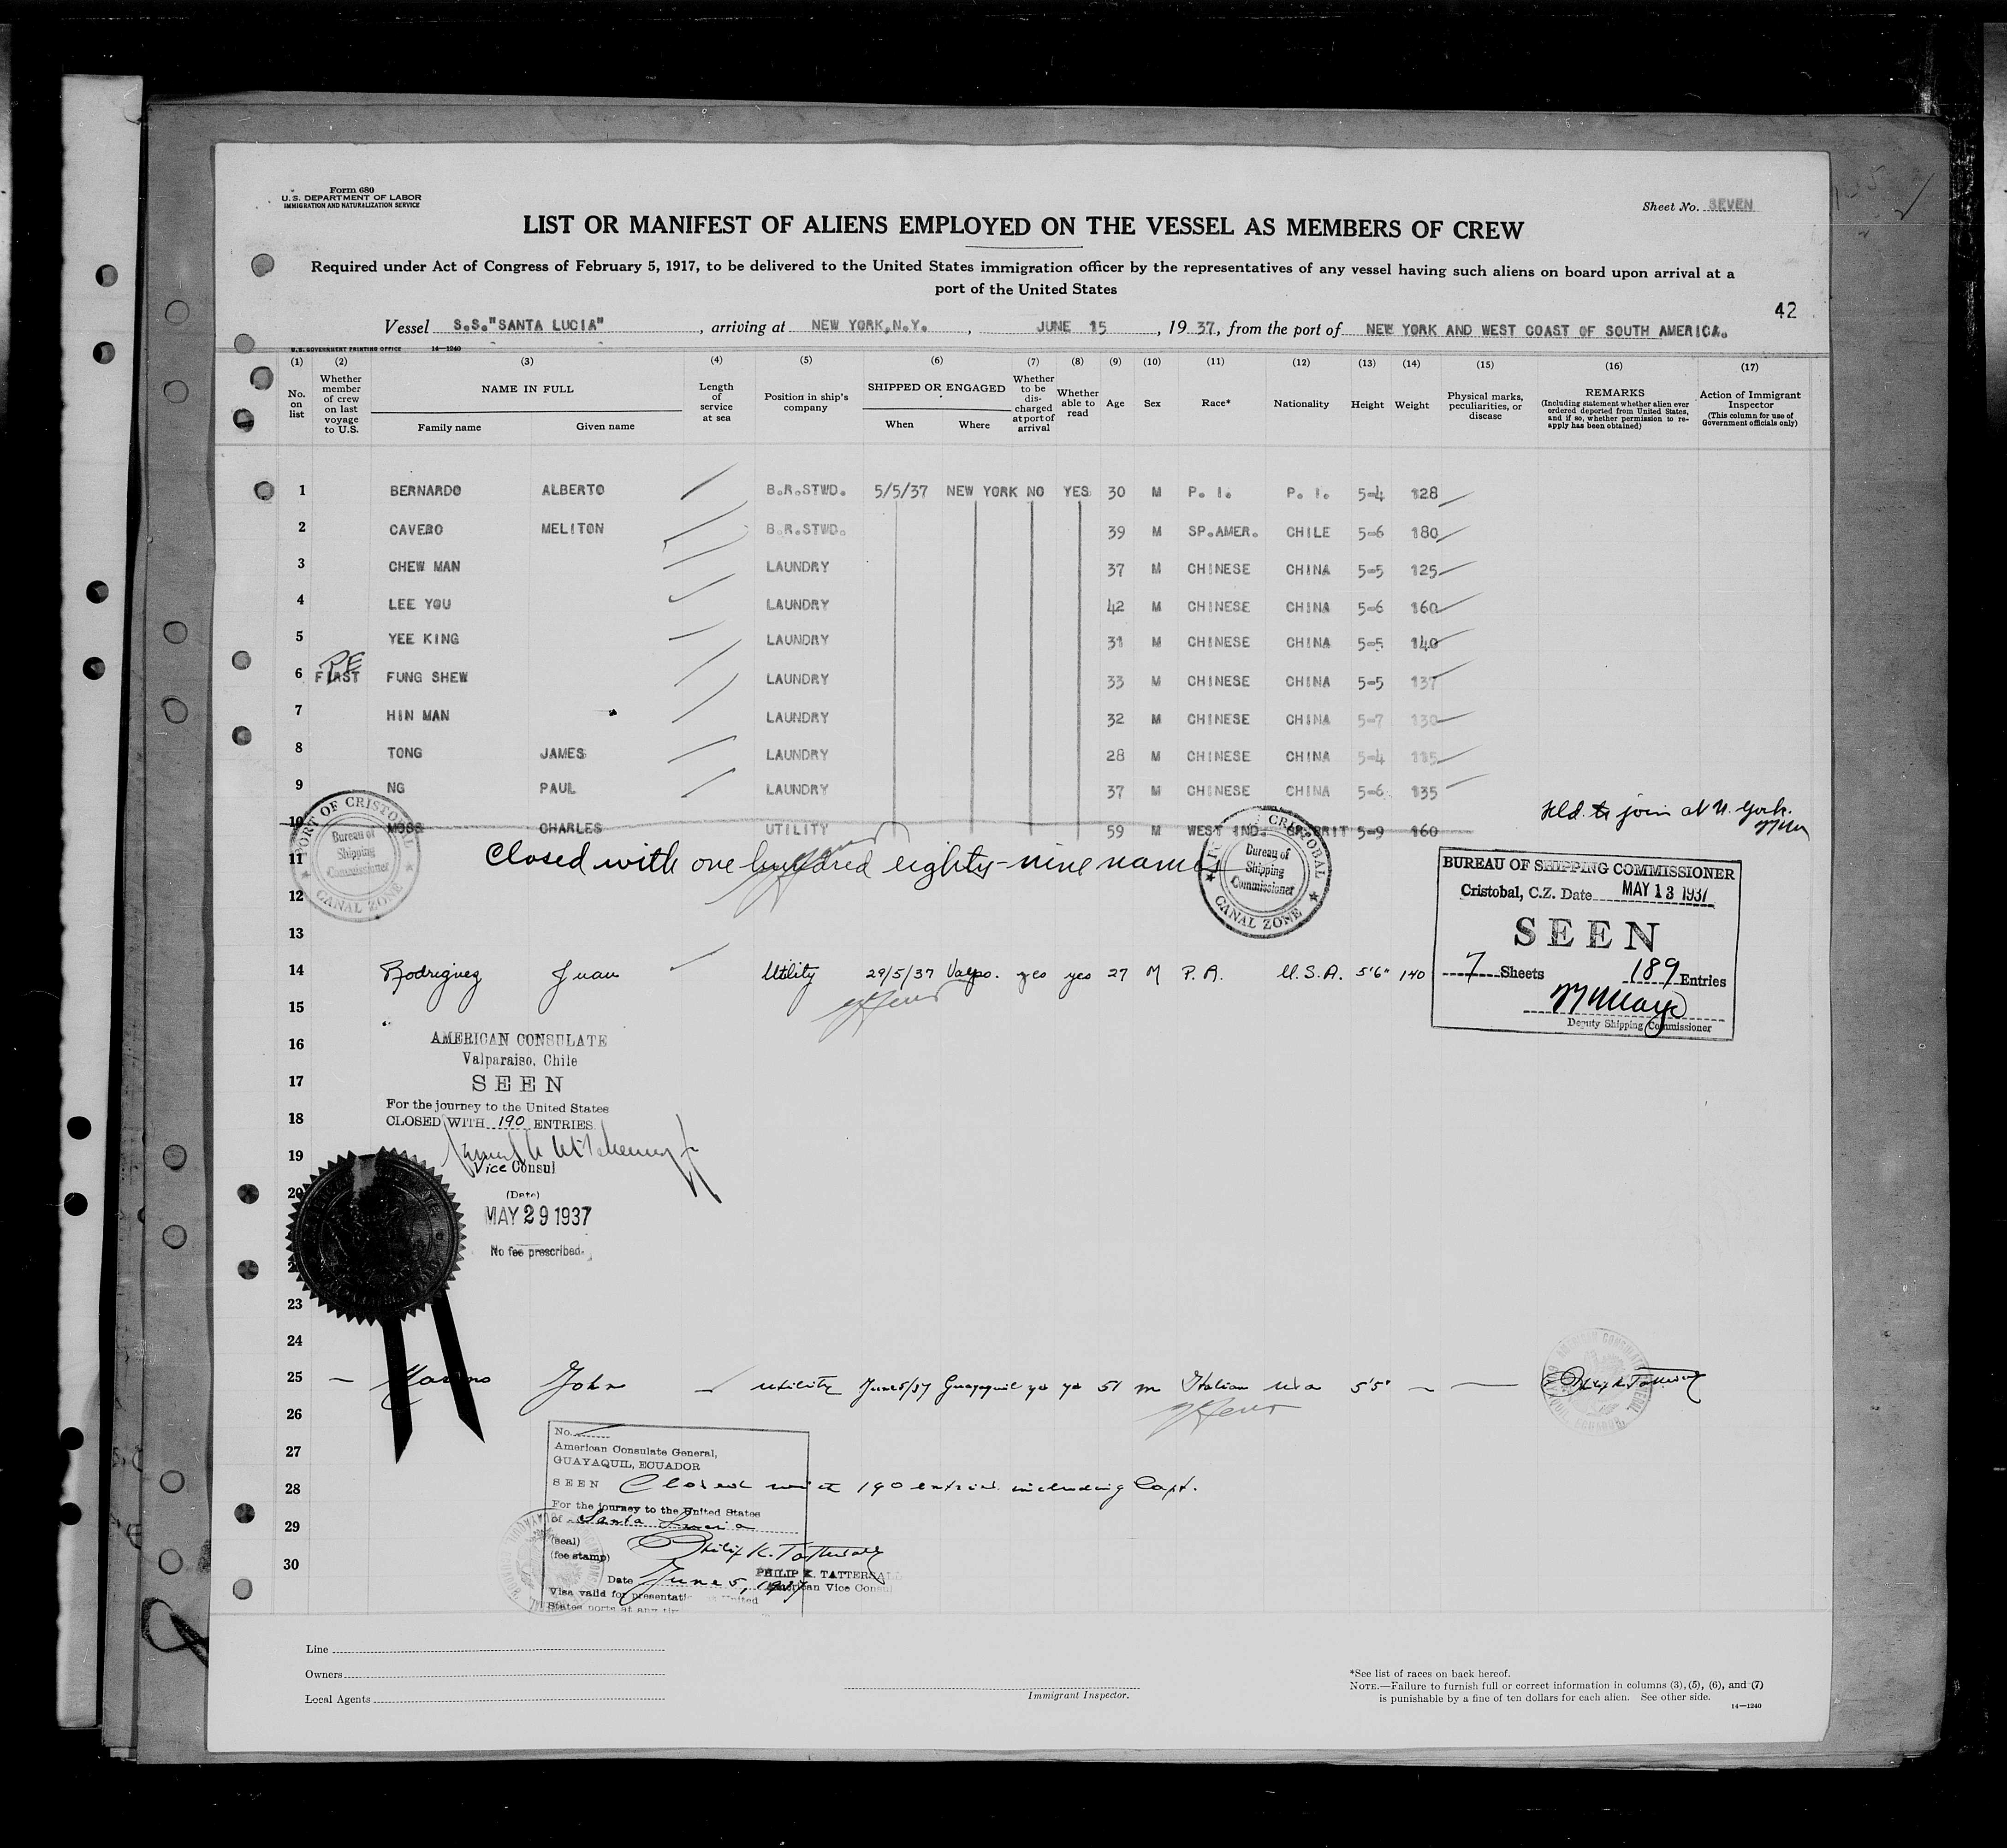 Form 680
U.S. DEPARTMENT OF LABOR
IMMIGRATION AND NATURALIZATION SERVICE
Sheet No. SEVEN
LIST OR MANIFEST OF ALIENS EMPLOYED ON THE VESSEL AS MEMBERS OF CREW
Required under Act of Congress of February 5, 1917, to be delivered to the United States immigration officer by the representatives of any vessel having such aliens on board upon arrival at a
port of the United States
42
Vessel S.S."SANTA LUCIA", arriving at NEW YORK,N.Y., JUNE 15, 1937, from the port of NEW YORK AND WEST COAST OF SOUTH AMERICA.
U.S. GOVERNMENT PRINTING OFFICE 14—1240
(1) (2) (3) (4) (5) (6) (7) (8) (9) (10) (11) (12) (13) (14) (15) (16) (17)
No. on list
Whether member of crew on last voyage to U.S.
NAME IN FULL
Family name Given name
Length of service at sea
Position in ship's company
SHIPPED OR ENGAGED
When Where
Whether to be discharged at port of arrival
Whether able to read
Age
Sex
Race*
Nationality
Height
Weight
Physical marks, peculiarities, or disease
REMARKS
(Including statement whether alien ever ordered deported from United States, and if so, whether permission to reapply has been obtained)
Action of Immigrant Inspector
(This column for use of Government officials only)
1 BERNARDO ALBERTO B.R.STWD. 5/5/37 NEW YORK NO YES 30 M P. I. P. I. 5-4 128
2 CAVERO MELITON B.R.STWD. 39 M SP.AMER. CHILE 5-6 180
3 CHEW MAN LAUNDRY 37 M CHINESE CHINA 5-5 125
4 LEE YOU LAUNDRY 42 M CHINESE CHINA 5-6 160
5 YEE KING LAUNDRY 31 M CHINESE CHINA 5-5 140
PE
6 FIRST FUNG SHEW LAUNDRY 33 M CHINESE CHINA 5-5 137
7 HIN MAN LAUNDRY 32 M CHINESE CHINA 5-7 130
8 TONG JAMES LAUNDRY 28 M CHINESE CHINA 5-4 115
9 NG PAUL LAUNDRY 37 M CHINESE CHINA 5-6 135
10 MOSS CHARLES UTILITY 59 M WEST IND. BRIT 5-9 160
to join at N. York.
11 Closed with one hundred eighty-nine names
PORT OF CRISTOBAL
Bureau of
Shipping
Commissioner
CANAL ZONE
CRISTOBAL
Bureau of
Shipping
Commissioner
CANAL ZONE
BUREAU OF SHIPPING COMMISSIONER
Cristobal, C.Z. Date MAY 13 1937
SEEN
7 Sheets 189 Entries
Deputy Shipping Commissioner
12
13
14 Rodriguez Juan Utility 29/5/37 Valpo. yes yes 27 M P. R. U.S.A. 5'6" 140
15
16
17
18
19
20
AMERICAN CONSULATE
Valparaiso, Chile
SEEN
For the journey to the United States
CLOSED WITH 190 ENTRIES.
Vice Consul
(Date)
MAY 29 1937
No fee prescribed.
23
24
25 John utility June 5/37 Guayaquil yes yes 51 m Italian usa 5'5" Philip K. Tattersall
AMERICAN CONSULATE GENERAL
GUAYAQUIL, ECUADOR
26
27
28
29
30
No.
American Consulate General,
GUAYAQUIL, ECUADOR
SEEN Closed with 190 entries including Capt.
For the journey to the United States
of Santa Lucia
(seal)
(fee stamp) Philip K. Tattersall
PHILIP K. TATTERSALL
Date June 5, 1937 American Vice Consul
Visa valid for presentati United
States ports at any tim
Line
Owners
Local Agents
Immigrant Inspector.
*See list of races on back hereof.
NOTE.—Failure to furnish full or correct information in columns (3), (5), (6), and (7)
is punishable by a fine of ten dollars for each alien. See other side.
14—1240